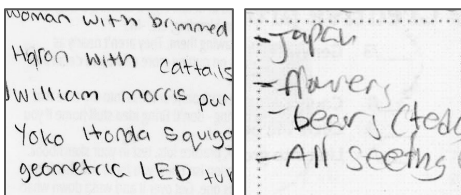 woman with brimmed
Haron with cattails
William morris pur
Yoko Honda Squigg
geometric LED tur
-Japan
-flowers
-bears (tedd
-All seeing